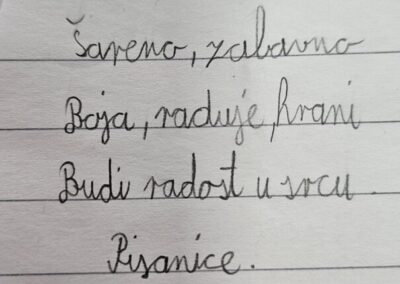 Šareno, zabavno
Boja, raduje, hrani
Budi radost u srcu.
Pisanice.